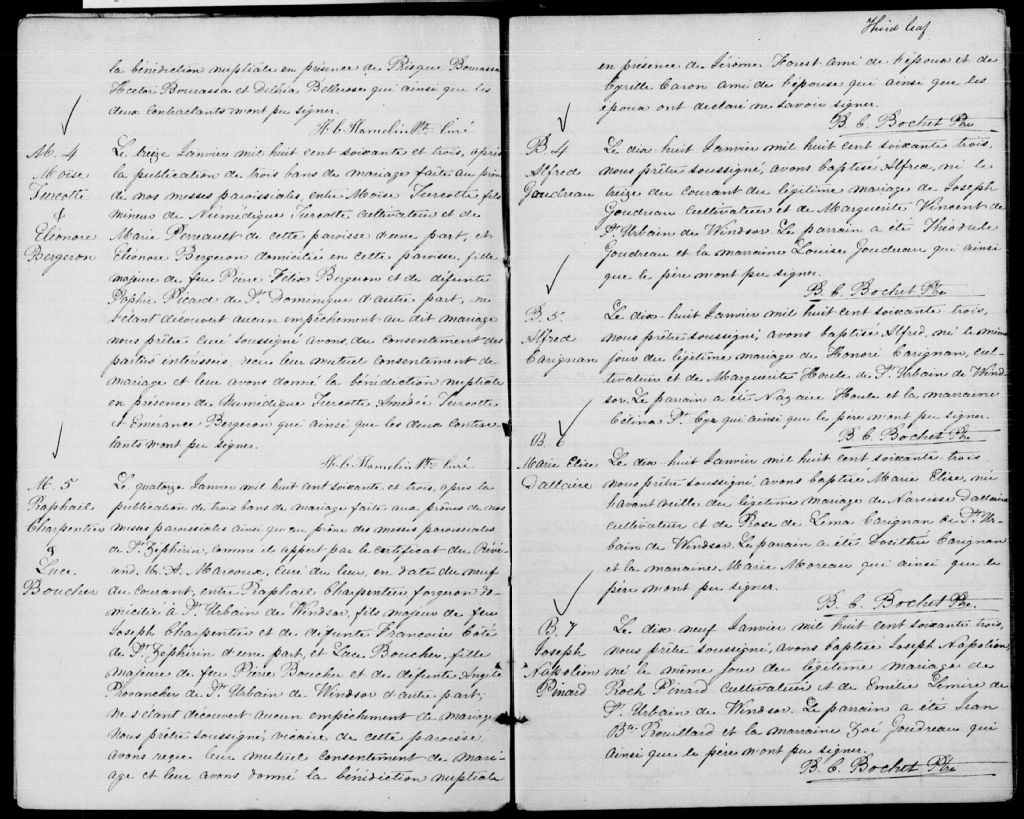 la bénédiction nuptiale en présence de Bisque Bourassa
Hector Bourassa et Délhia Bellerose qui ainsi que les
deux contractants n'ont pu signer.
H. C. Hamelin Ptr. Curé
M. 4
Moïse
Turcotte
&
Eléonore
Bergeron
Le treize Janvier mil huit cent soixante et trois, après
la publication de trois bans de mariage faite au prône
de nos messes paroissiales, entre Moïse Turcotte, fils
mineur de Numédique Turcotte, cultivateur et de
Marie Perreault de cette paroisse d'une part, et
Eléonore Bergeron domiciliée en cette paroisse, fille
majeure de feu Pierre Félix Bergeron et de défunte
Sophie Picard de St. Dominique d'autre part, ne
s'étant découvert aucun empêchement au dit mariage
nous prêtre curé soussigné avons, du consentement des
parties intéressées, reçu leur mutuel consentement de
mariage et leur avons donné la bénédiction nuptiale
en présence de Numédique Turcotte Amédée Turcotte
et Emérance Bergeron qui ainsi que les deux contrac-
tants n'ont pu signer.
H. C. Hamelin Ptr. Curé
M. 5
Raphaël
Charpentier
&
Luce
Boucher
Le quatorze Janvier mil huit cent soixante et trois, après la
publication de trois bans de mariage faite aux prônes de nos
messes paroissiales ainsi qu'au prône des messes paroissiales
de St. Zéphirin, comme il appert par le certificat du Révé-
rend Mr. A. Marcoux, Curé du lieu, en date du neuf
du courant, entre Raphaël Charpentier forgeron do-
micilié à St. Urbain de Windsor, fils majeur de feu
Joseph Charpentier et de défunte Francoise Côté
de St. Zéphirin d'une part, et Luce Boucher, fille
majeure de feu Pierre Boucher et de défunte Angèle
Provancher de St. Urbain de Windsor d'autre part;
ne s'étant découvert aucun empêchement de mariage
Nous prêtre soussigné, vicaire de cette paroisse
avons reçu leur mutuel consentement de mari-
age et leur avons donné la bénédiction nuptiale
Third leaf
en présence de Jérôme Forest ami de l'époux et de
Cyrille Caron ami de l'épouse qui ainsi que les
époux ont declaré ne savoir signer.
B. C. Bochet Ptr
B. 4
Alfred
Goudreau
Le dix huit Janvier mil huit cent soixante trois,
nous prêtre soussigné, avons baptisé Alfred, né le
treize du courant du légitime mariage de Joseph
Goudreau Cultivateur et de Marguerite Vincent de
St. Urbain de Windsor. Le parrain a été Théodule
Goudreau et la marraine Louise Goudreau qui ainsi
que le père n'ont pu signer.
B. C. Bochet Ptr
B. 5.
Alfred
Carignan
Le dix huit Janvier mil huit cent soixante trois,
nous prêtre soussigné, avons baptisé Alfred, né le même
jour du légitime mariage de Honoré Carignan, cul-
tivateur et de Marguerite Houle de St. Urbain de Wind-
sor. Le parrain a été Nazaire Houle et la marraine
Célina St. Cyr qui ainsi que le père n'ont pu signer.
B. C. Bochet Ptr
B. 6
Marie Elise
Dallaire
Le dix huit Janvier mil huit cent soixante trois
nous prêtre soussigné, avons baptisé Marie Elise, née
l'avant veille du légitime mariage de Narcisse Dallaire
cultivateur et de Rose de Lima Carignan de St. Ur-
bain de Windsor. Le parrain a été Dosithé Carignan
et la marraine Marie Moreau qui ainsi que le
père n'ont pu signer.
B. C. Bochet Ptr.
B. 7
Joseph
Napoléon
Pinard
Le dix neuf Janvier mil huit cent soixante trois,
nous prêtre soussigné, avons baptisé Joseph Napoléon,
né le même jour du légitime mariage de
Roch Pinard cultivateur et de Emélie Lemire de
St. Urbain de Windsor. Le parrain a été Jean
Bte Rouillard et la marraine Zoé Goudreau qui
ainsi que le père n'ont pu signer.
B. C. Bochet Ptr